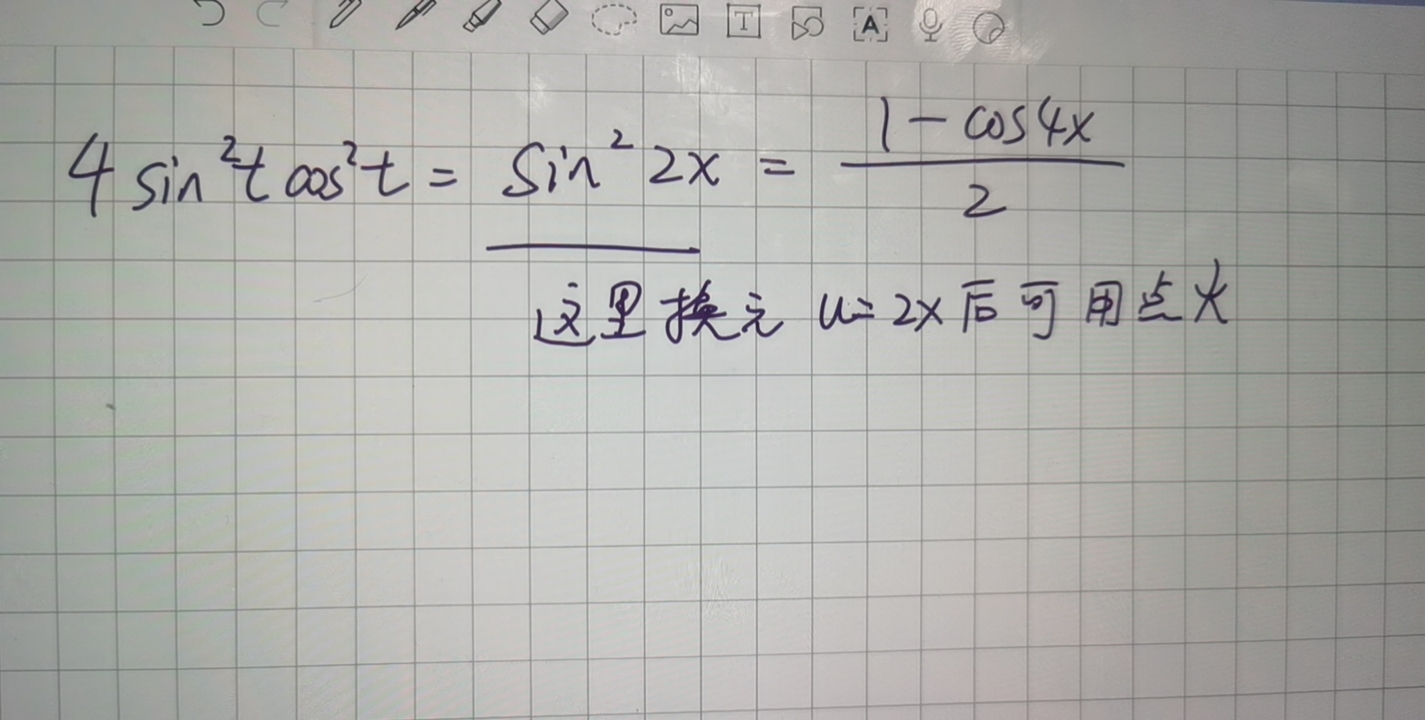 4 sin²t cos²t = sin² 2x = (1 - cos4x)/2
这里换元 u=2x后可用点火